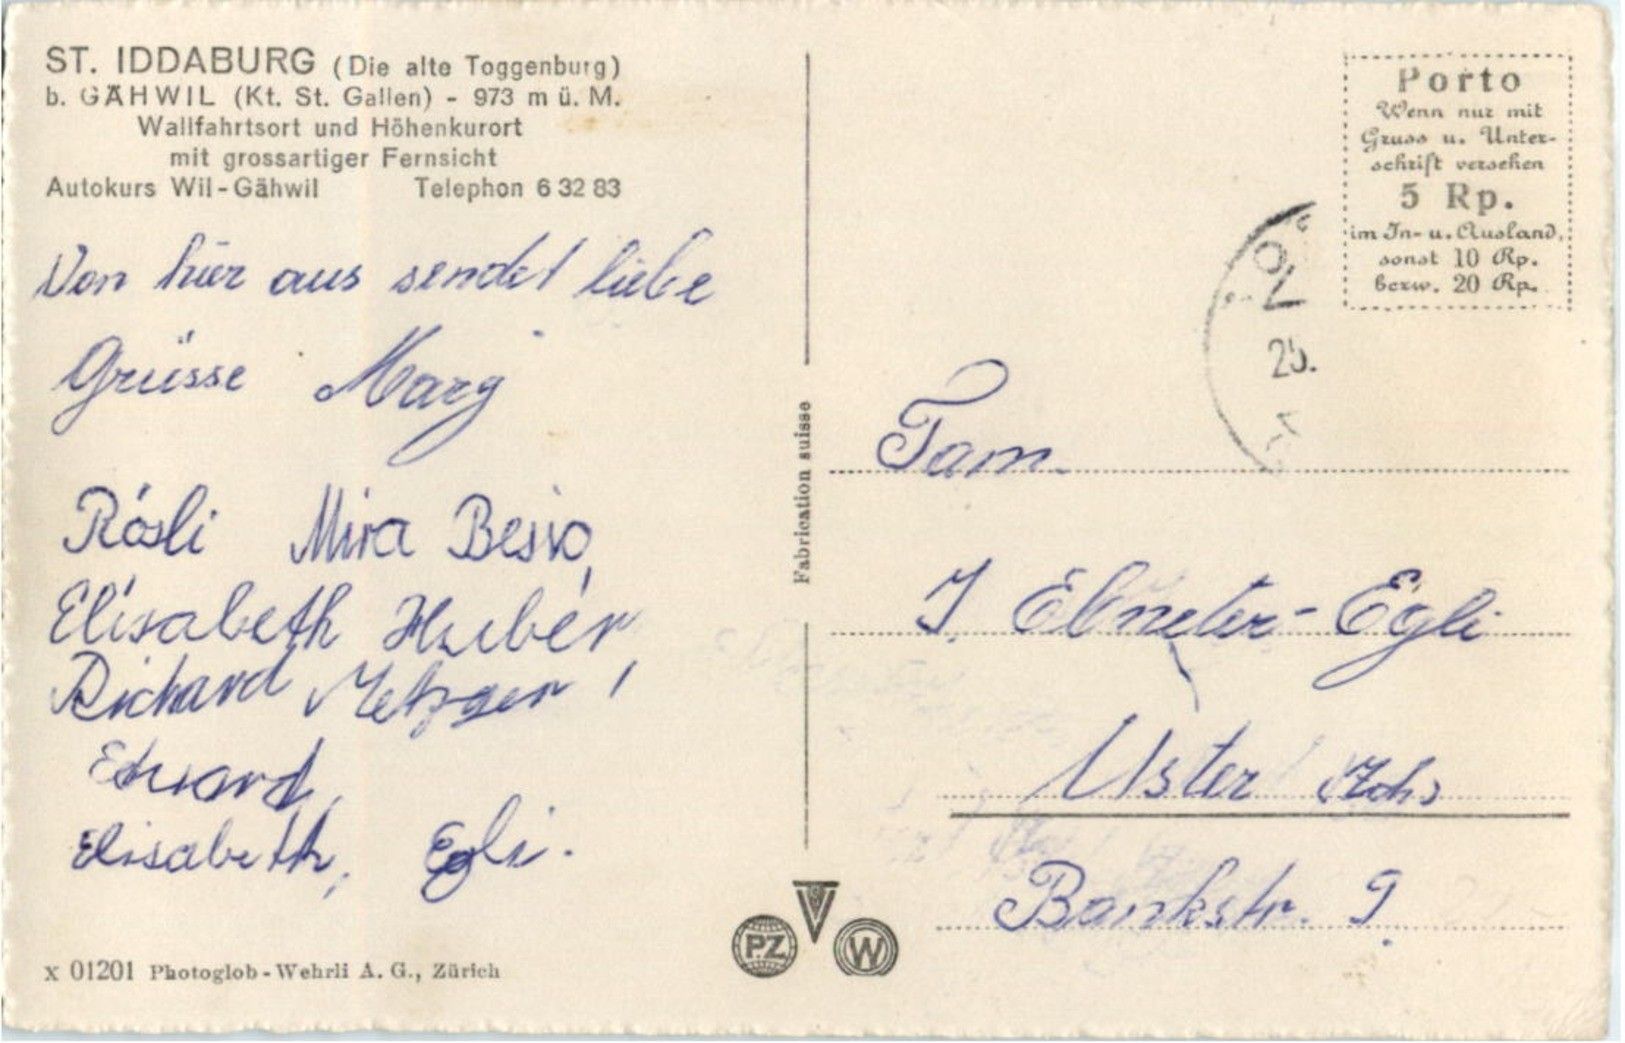 ST. IDDABURG (Die alte Toggenburg)
b. GÄHWIL (Kt. St. Gallen) - 973 m ü. M.
Wallfahrtsort und Höhenkurort
mit grossartiger Fernsicht
Autokurs Wil-Gähwil Telephon 6 32 83
Von hier aus sendet liebe
Grüsse Marg
Rösli Mira
Elisabeth Huber,
Richard Metzger,
Eduard,
Elisabeth, Egli.
x 01201 Photoglob-Wehrli A. G., Zürich
Fabrication suisse
PZ
W
Porto
Wenn nur mit
Gruss u. Unter-
schrift versehen
5 Rp.
im In- u. Ausland,
sonst 10 Rp.
bezw. 20 Rp.
25.
Fam.
J. Ebneter-Egli
Uster
Bankstr. 9.